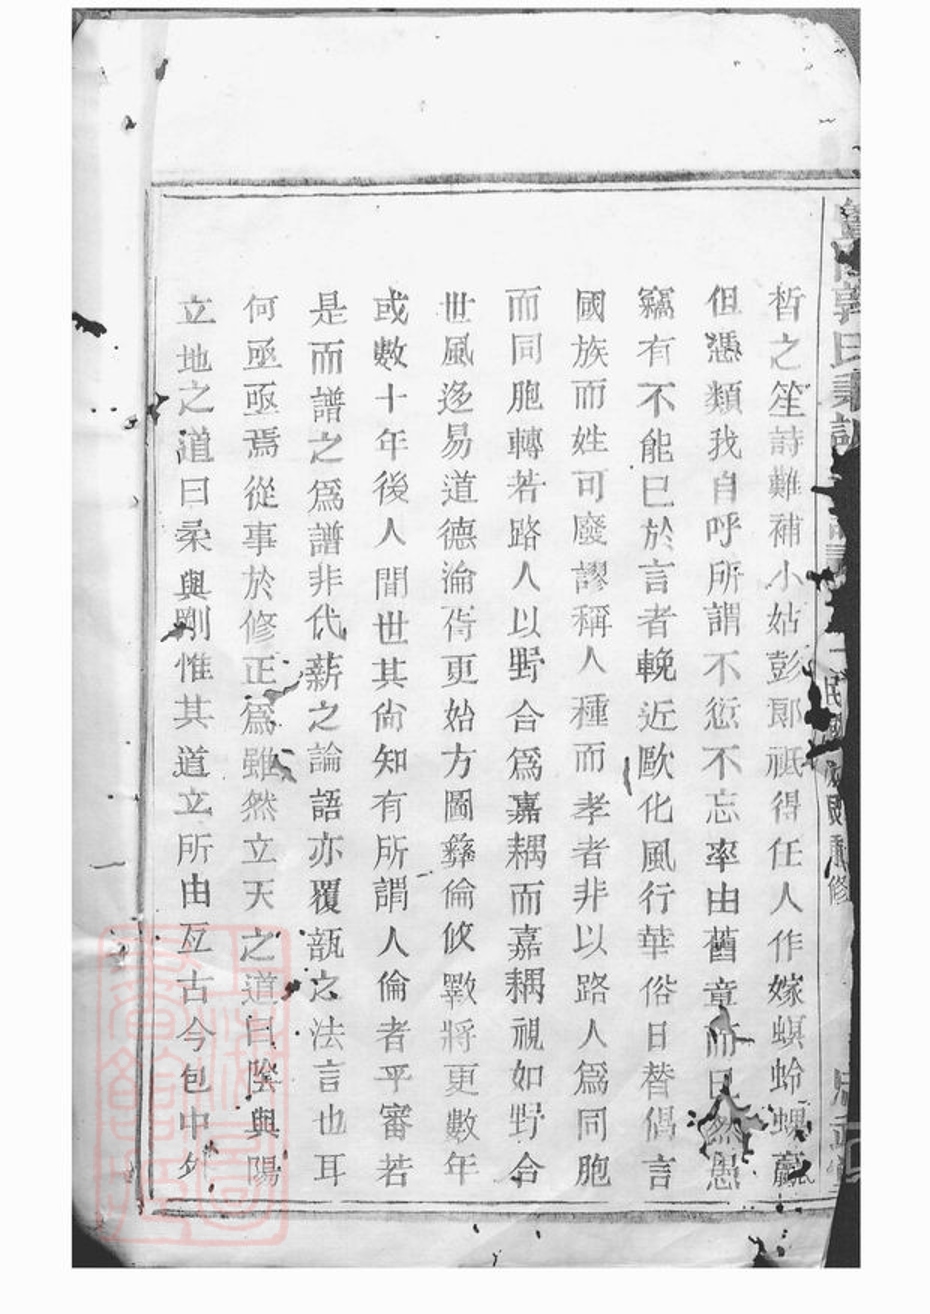 晳之笙詩難補小姑彭郎祇得任人作嫁螟蛉蜾蠃
但憑類我自呼所謂不愆不忘率由舊章而已然愚
竊有不能已於言者輓近歐化風行華俗日朁偶言
國族而姓可廢謬稱人種而孝者非以路人爲同胞
而同胞轉若路人以野合爲嘉耦而嘉耦視如野合
世風迻易道德淪胥更始方圖彝倫攸斁將更數年
或數十年後人間世其尙知有所謂人倫者乎審若
是而譜之爲譜非代薪之論語亦覆瓿之法言也耳
何亟亟焉從事於修正爲雖然立天之道曰陰與陽
立地之道曰柔與剛惟其道立所由亙古今包中外
郭氏
修